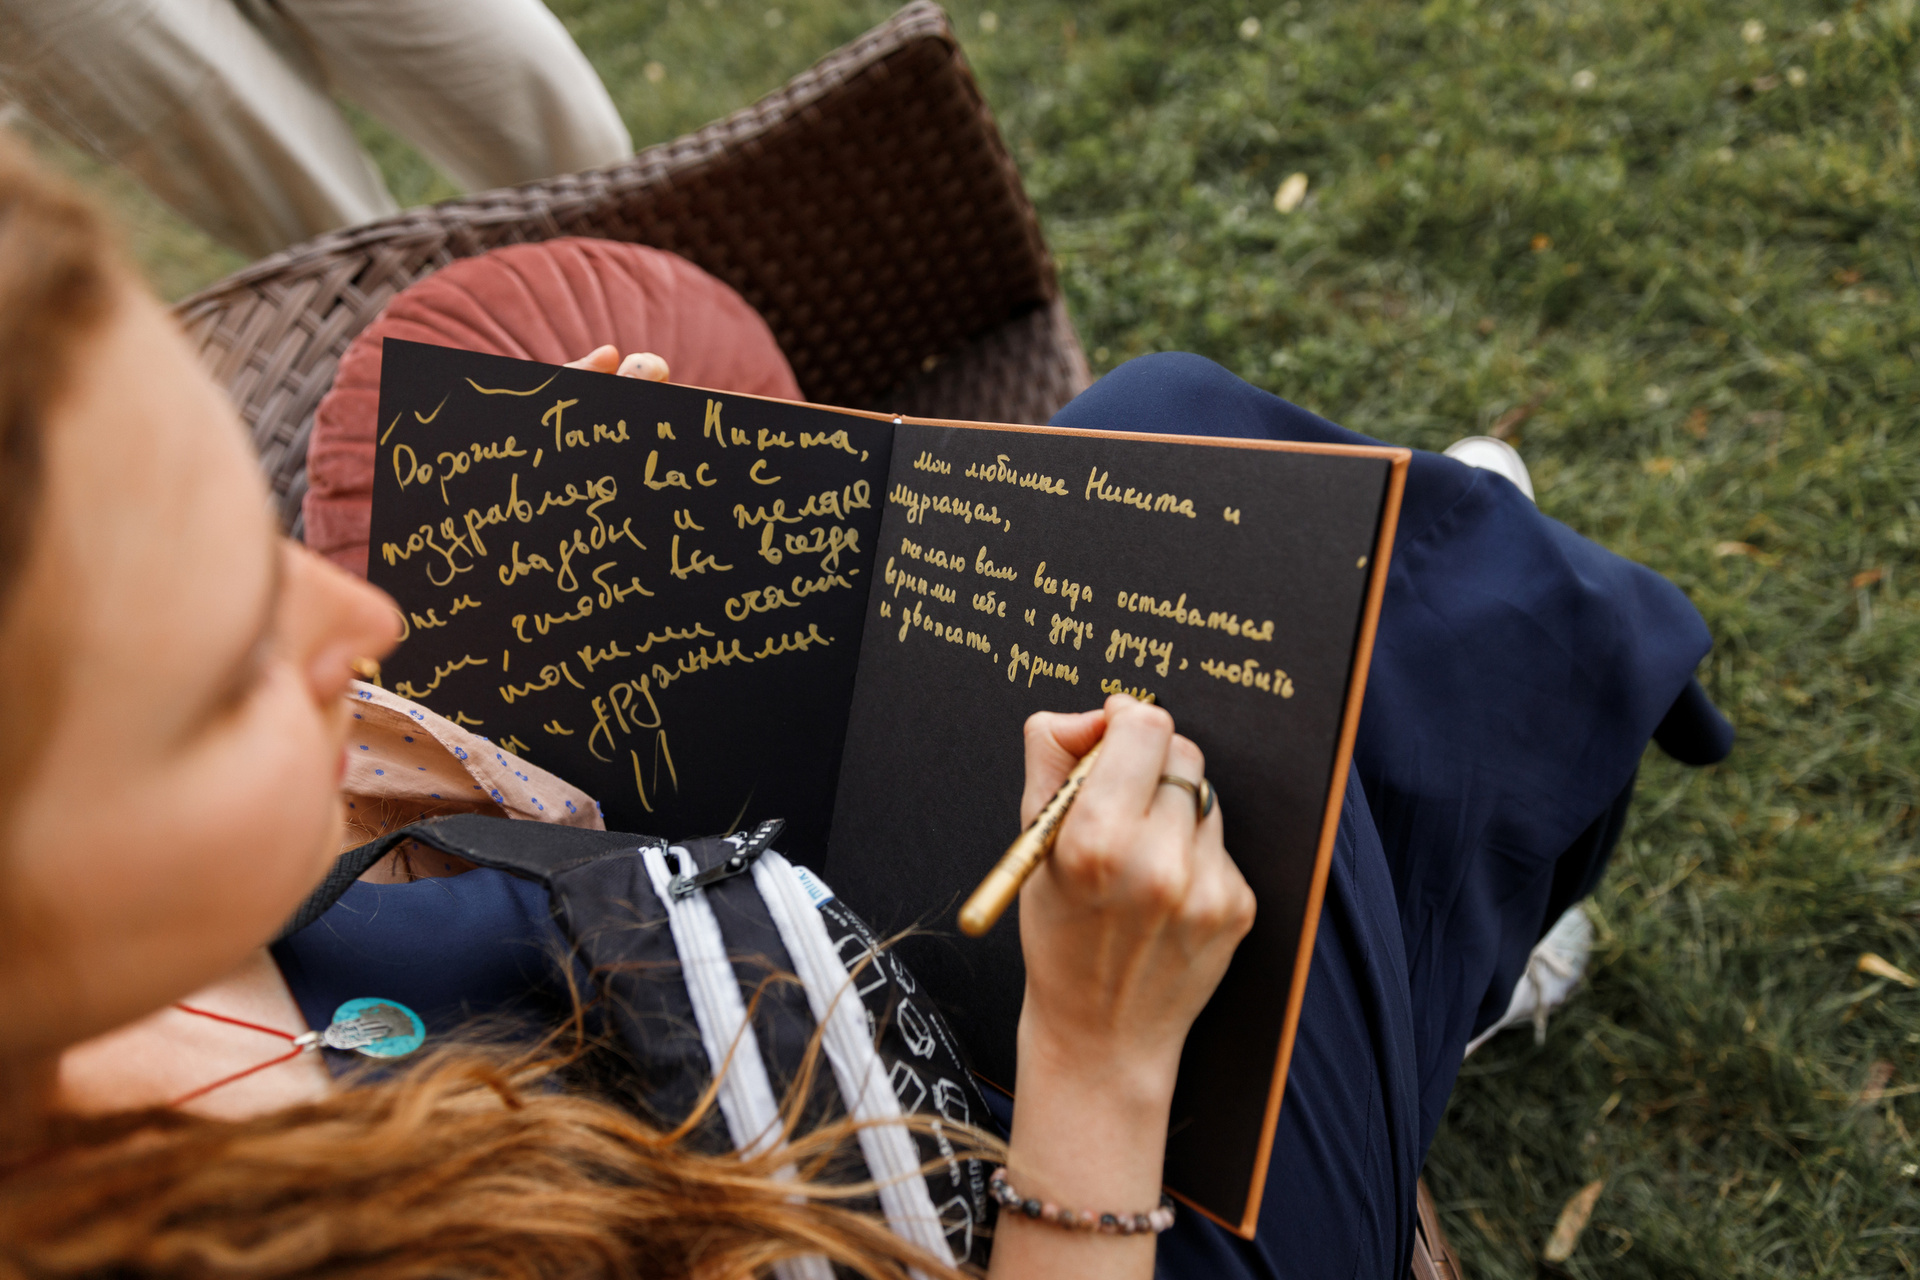 Дорогие, Таня и Никита,
поздравляю вас с
Днем свадьбы и желаю
вам, чтобы вы всегда
были такими счаст-
ы и дружными.
Мои любимые Никита и
желаю вам всегда оставаться
верными себе и друг другу, любить
и уважать, дарить